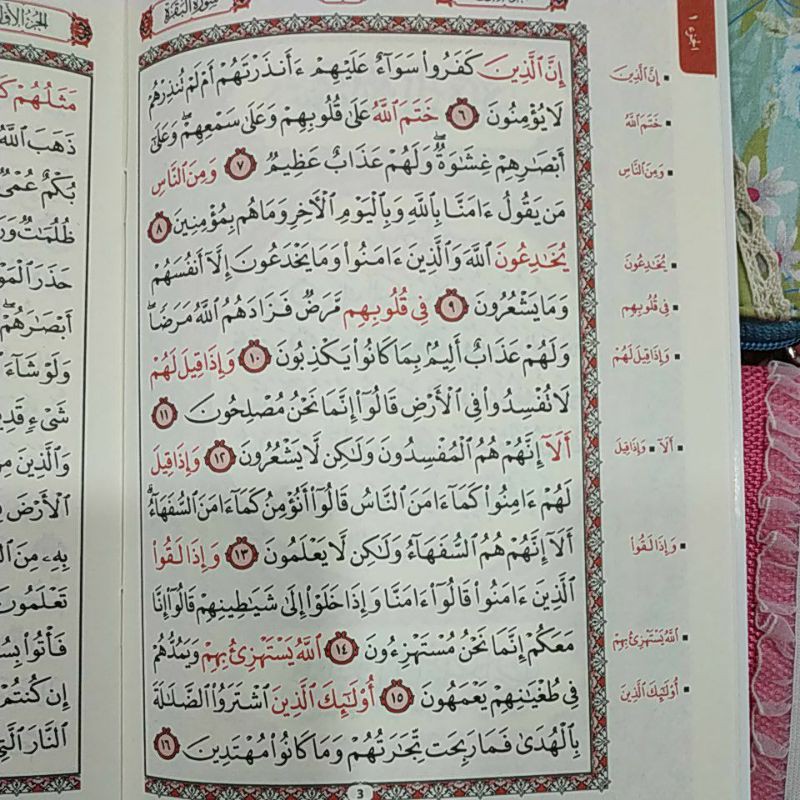 الجزء ١
سورة البقرة
إِنَّ ٱلَّذِينَ كَفَرُوا۟ سَوَآءٌ عَلَيْهِمْ ءَأَنذَرْتَهُمْ أَمْ لَمْ تُنذِرْهُمْ
لَا يُؤْمِنُونَ ٦ خَتَمَ ٱللَّهُ عَلَىٰ قُلُوبِهِمْ وَعَلَىٰ سَمْعِهِمْ ۖ وَعَلَىٰٓ
أَبْصَـٰرِهِمْ غِشَـٰوَةٌ ۖ وَلَهُمْ عَذَابٌ عَظِيمٌ ٧ وَمِنَ ٱلنَّاسِ
مَن يَقُولُ ءَامَنَّا بِٱللَّهِ وَبِٱلْيَوْمِ ٱلْـَٔاخِرِ وَمَا هُم بِمُؤْمِنِينَ ٨
يُخَـٰدِعُونَ ٱللَّهَ وَٱلَّذِينَ ءَامَنُوا۟ وَمَا يَخْدَعُونَ إِلَّآ أَنفُسَهُمْ
وَمَا يَشْعُرُونَ ٩ فِى قُلُوبِهِم مَّرَضٌ فَزَادَهُمُ ٱللَّهُ مَرَضًا ۖ
وَلَهُمْ عَذَابٌ أَلِيمٌۢ بِمَا كَانُوا۟ يَكْذِبُونَ ١٠ وَإِذَا قِيلَ لَهُمْ
لَا تُفْسِدُوا۟ فِى ٱلْأَرْضِ قَالُوٓا۟ إِنَّمَا نَحْنُ مُصْلِحُونَ ١١
أَلَآ إِنَّهُمْ هُمُ ٱلْمُفْسِدُونَ وَلَـٰكِن لَّا يَشْعُرُونَ ١٢ وَإِذَا قِيلَ
لَهُمْ ءَامِنُوا۟ كَمَآ ءَامَنَ ٱلنَّاسُ قَالُوٓا۟ أَنُؤْمِنُ كَمَآ ءَامَنَ ٱلسُّفَهَآءُ ۗ
أَلَآ إِنَّهُمْ هُمُ ٱلسُّفَهَآءُ وَلَـٰكِن لَّا يَعْلَمُونَ ١٣ وَإِذَا لَقُوا۟
ٱلَّذِينَ ءَامَنُوا۟ قَالُوٓا۟ ءَامَنَّا وَإِذَا خَلَوْا۟ إِلَىٰ شَيَـٰطِينِهِمْ قَالُوٓا۟ إِنَّا
مَعَكُمْ إِنَّمَا نَحْنُ مُسْتَهْزِءُونَ ١٤ ٱللَّهُ يَسْتَهْزِئُ بِهِمْ وَيَمُدُّهُمْ
فِى طُغْيَـٰنِهِمْ يَعْمَهُونَ ١٥ أُو۟لَـٰٓئِكَ ٱلَّذِينَ ٱشْتَرَوُا۟ ٱلضَّلَـٰلَةَ
بِٱلْهُدَىٰ فَمَا رَبِحَت تِّجَـٰرَتُهُمْ وَمَا كَانُوا۟ مُهْتَدِينَ ١٦
3
▪ إِنَّ ٱلَّذِينَ
▪ خَتَمَ ٱللَّهُ
▪ وَمِنَ ٱلنَّاسِ
▪ يُخَـٰدِعُونَ
▪ فِى قُلُوبِهِم
▪ وَإِذَا قِيلَ لَهُمْ
▪ أَلَآ ▪ وَإِذَا قِيلَ
▪ وَإِذَا لَقُوا۟
▪ ٱللَّهُ يَسْتَهْزِئُ بِهِمْ
▪ أُو۟لَـٰٓئِكَ ٱلَّذِينَ
مَثَلُهُمْ
ذَهَبَ ٱللَّهُ
بُكْمٌ عُمْىٌ
ظُلُمَـٰتٌ
حَذَرَ
أَبْصَـٰرَهُمْ
وَلَوْ شَآءَ
شَىْءٍ
وَٱلَّذِينَ
ٱلْأَرْضَ
بِهِۦ مِنَ
تَعْلَمُونَ
فَأْتُوا۟
إِن كُنتُمْ
ٱلنَّارَ